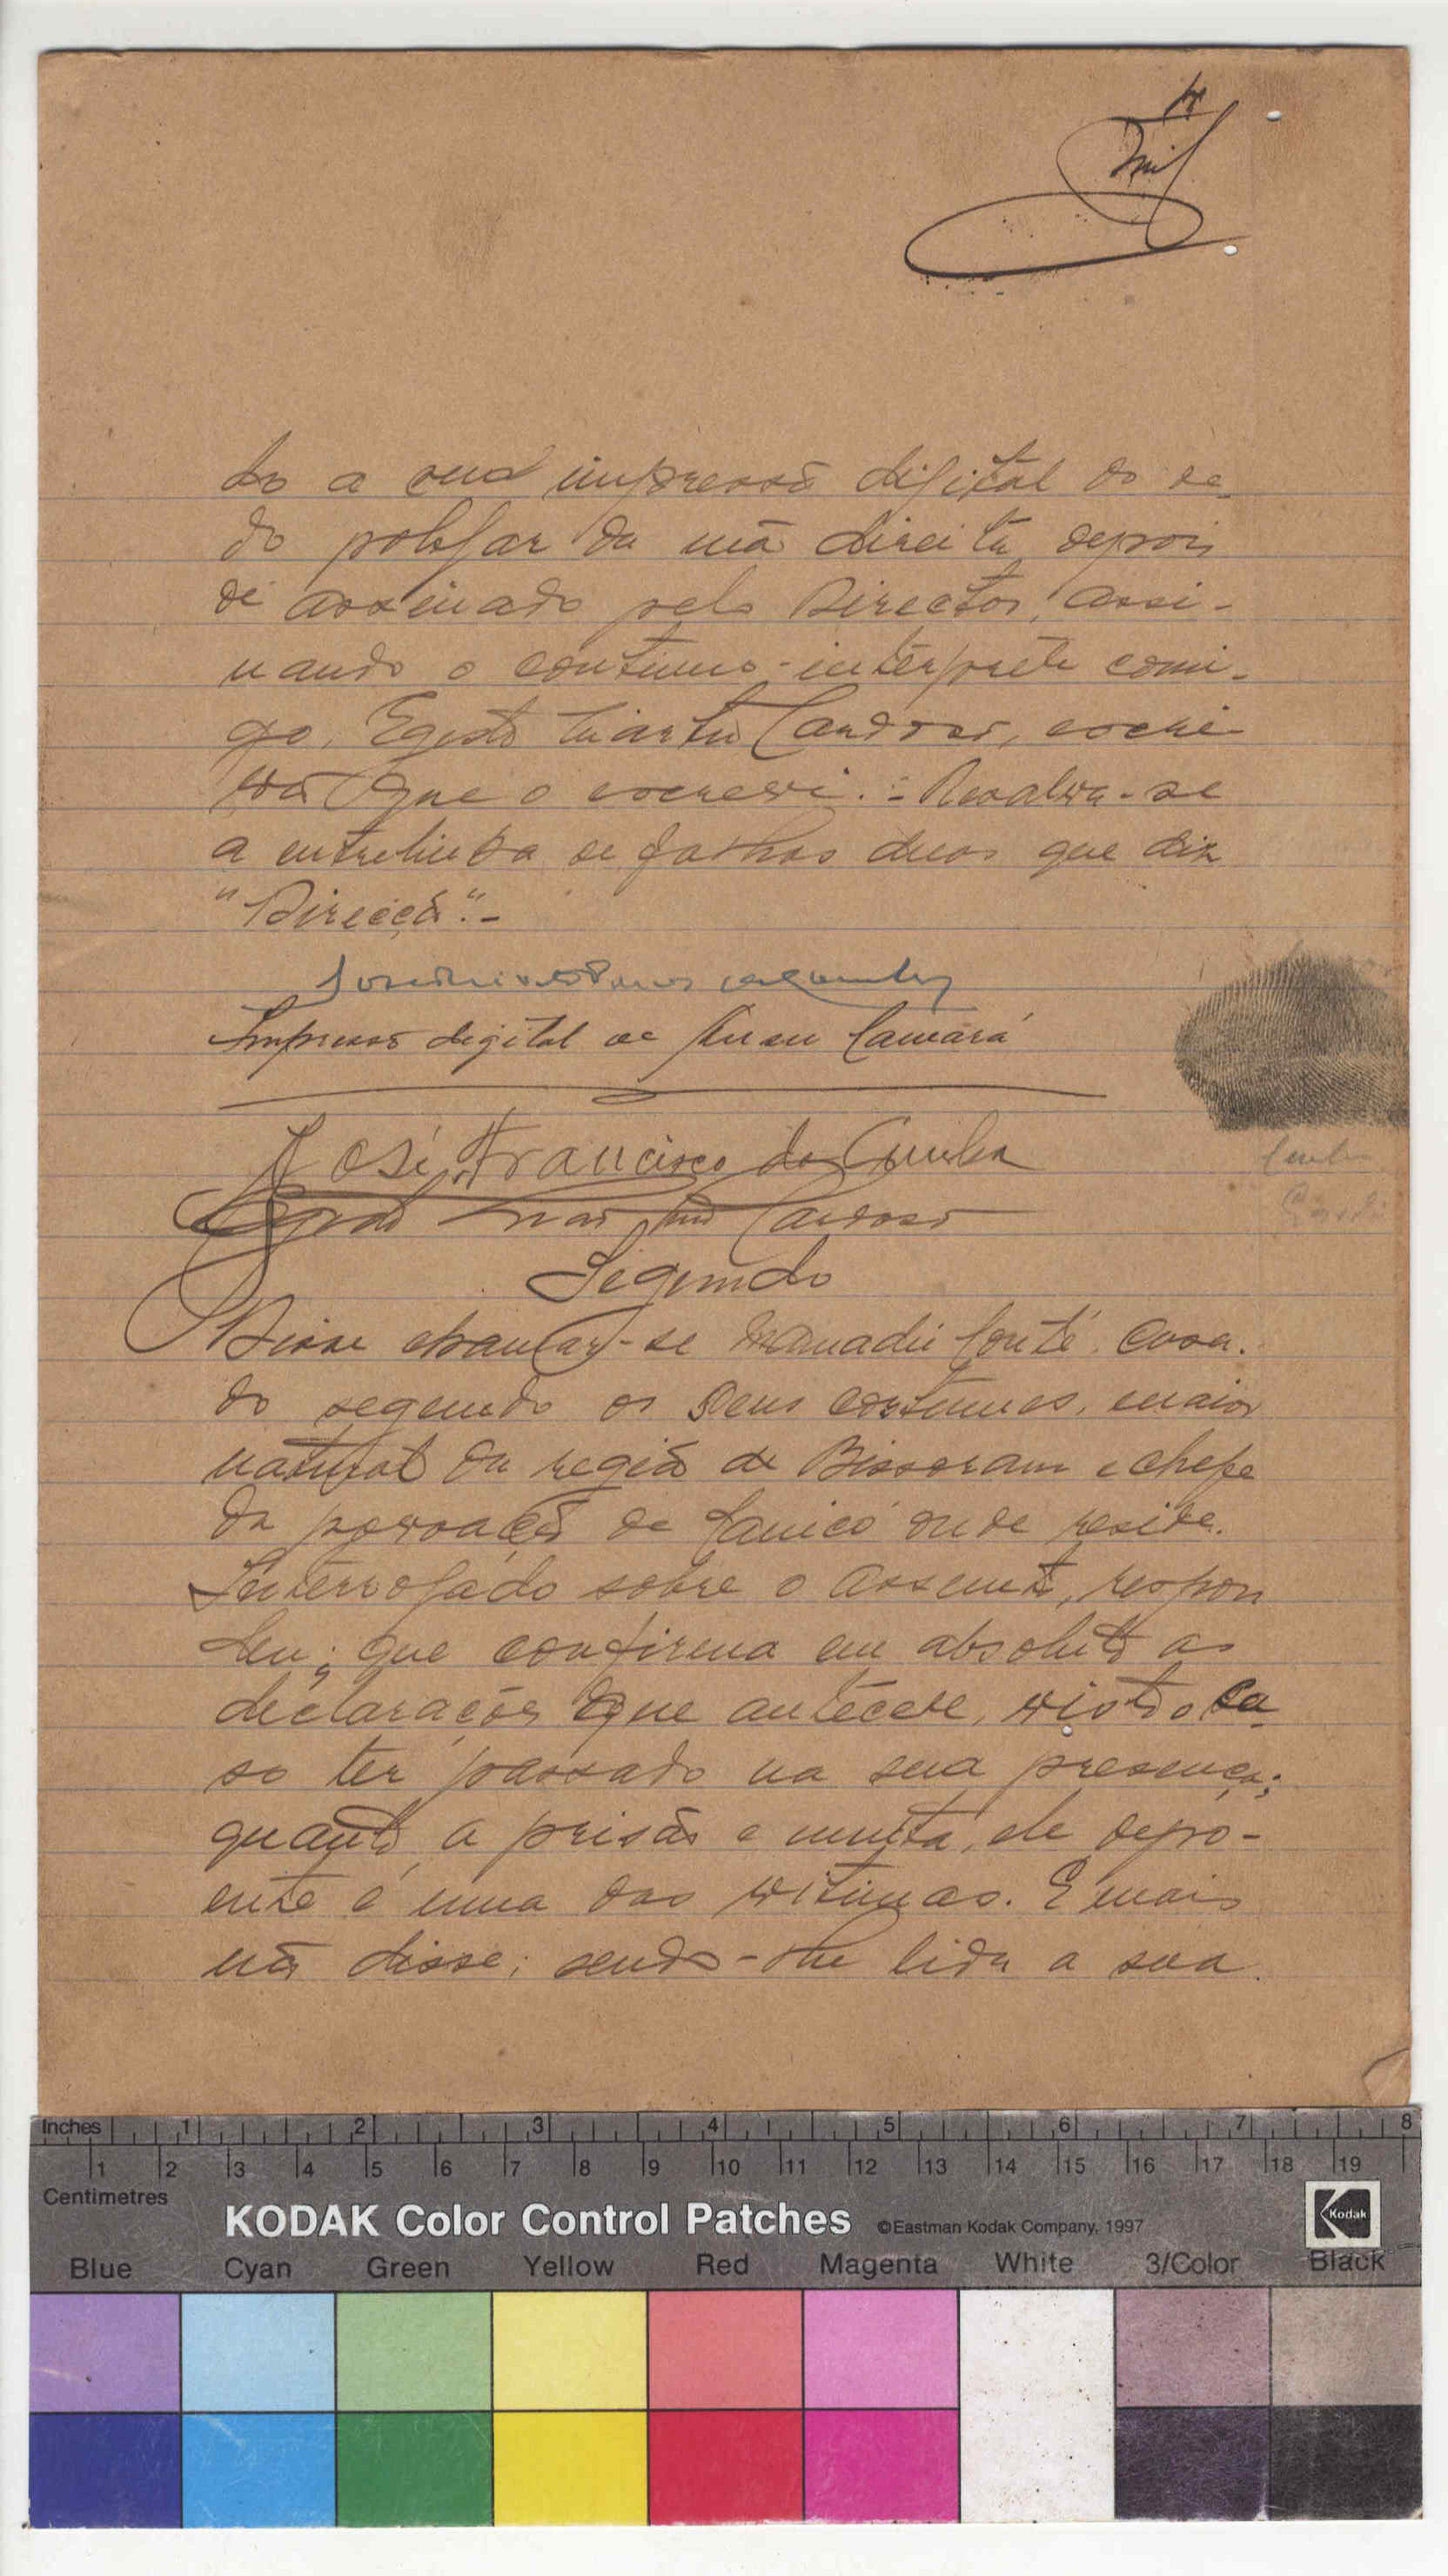 do a sua impressã digital do de-
do polegar da mã direita depois
de assinado pelo Director, assi-
nando o contínuo-intérprete comi-
go, Egisto Martins Cardoso, escri-
vã que o escrevi. - Resalva-se
a entrelinha de folhas duas que diz
"Direcçã".-
Impressão digital de Camará
José Francisco da Cunha
Cardoso
Segundo
Disse chamar-se Mamadú Conté, casa-
do segundo os seus costumes, maior
natural da regiã de Bissoram e chefe
da povoaçã de onde reside.
Interrogado sobre o assunto, respon
deu; que confirma em absoluto as
declarações que antecede, visto o ca-
so ter passado na sua presença;
quanto a prisão e multa, ele depo-
ente é uma das vitimas. E mais
nã disse; sendo-lhe lida a sua
Cunha
Inches 1 2 3 4 5 6 7 8
1 2 3 4 5 6 7 8 9 10 11 12 13 14 15 16 17 18 19
Centimetres
KODAK Color Control Patches ©Eastman Kodak Company, 1997 Kodak
Blue Cyan Green Yellow Red Magenta White 3/Color Black